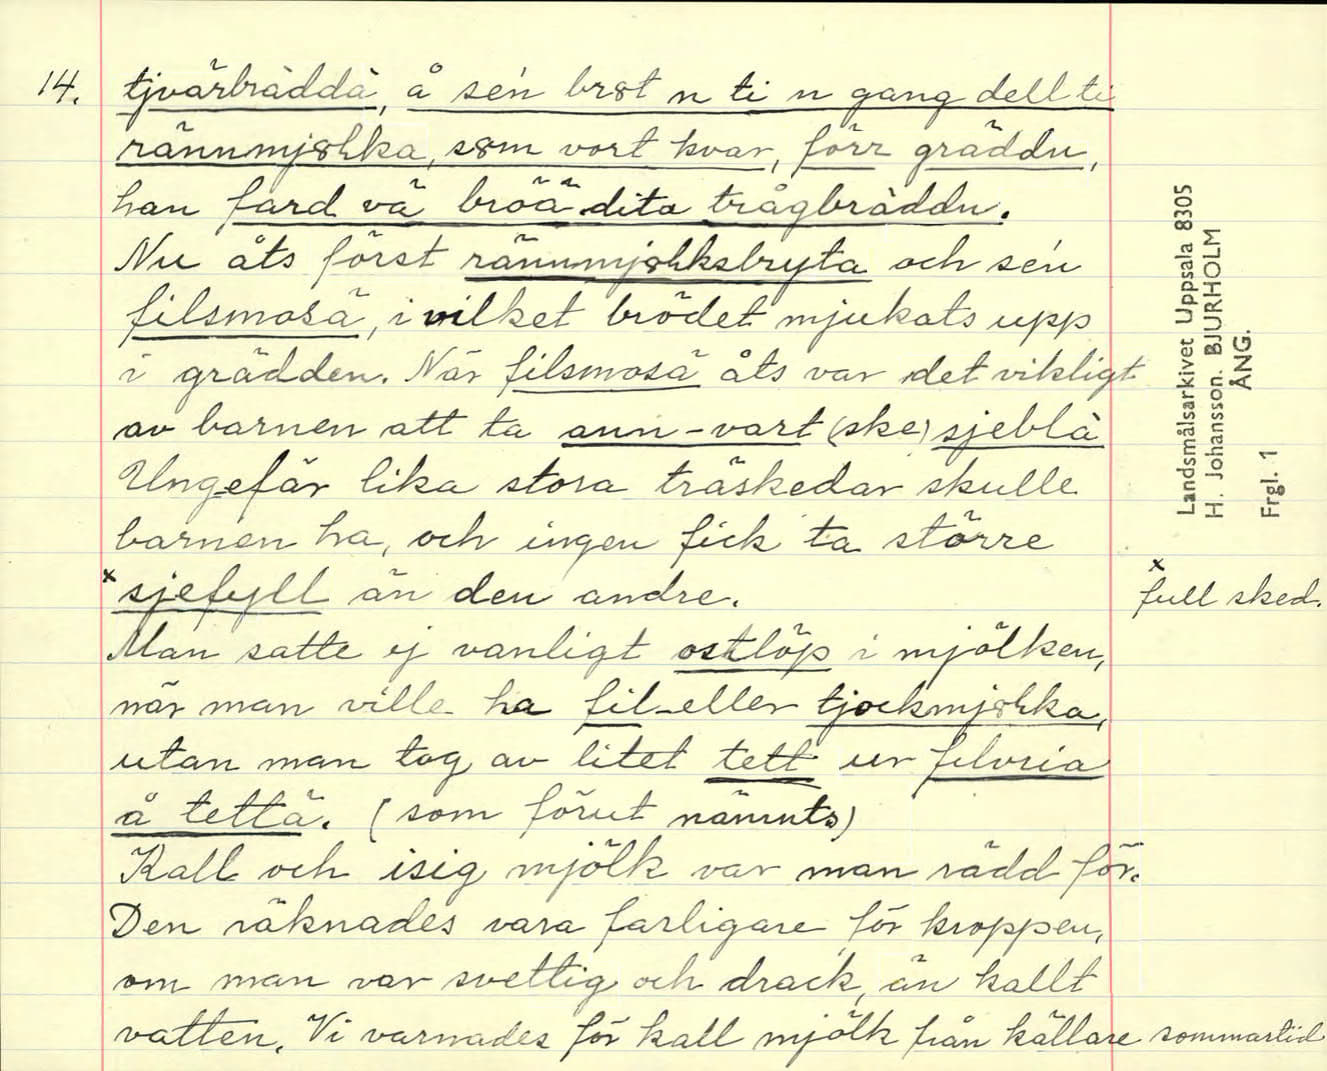 14. tjvärbräddä, å se'n br8t n ti n gang dell ti
rännmj8hka, s8m vort kvar, förr gräddu,
han fard vä bröä dita trågbräddu.
Nu åts först rännmj8hksbryta och se'n
filsmosä, i vilket brödet mjukats upp
i grädden. När filsmosä åts var det viktigt
av barnen att ta ann-vart (ske) sjeblä
Ungefär lika stora träskedar skulle
barnen ha, och ingen fick ta större
x sjefyll än den andre.
x full sked.
Man satte ej vanligt ostlöp i mjölken,
när man ville ha fil-eller tjockmj8hka,
utan man tog av litet tett ur filvria
å tettä. (som förut nämnts)
Kall och isig mjölk var man rädd för.
Den räknades vara farligare för kroppen,
om man var svettig och drack, än kallt
vatten. Vi varnades för kall mjölk från källare sommartid
Landsmålsarkivet Uppsala 8305
H. Johansson. BJURHOLM
ÅNG.
Frgl. 1